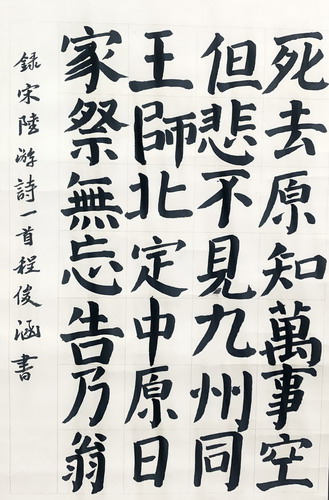 死去原知萬事空
但悲不見九州同
王師北定中原日
家祭無忘告乃翁
録宋陸游詩一首程俊涵書